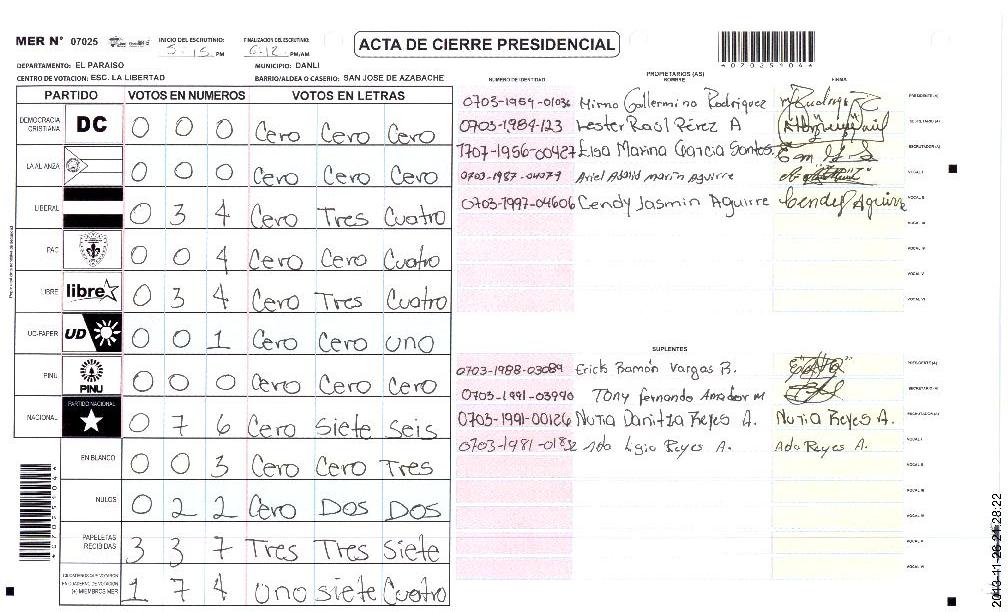 MER N° 07025
INICIO DEL ESCRUTINIO: 5:15 PM
FINALIZACION DEL ESCRUTINIO: 6:12 PM/AM
ACTA DE CIERRE PRESIDENCIAL
4070251044
DEPARTAMENTO: EL PARAISO MUNICIPIO: DANLI
CENTRO DE VOTACION: ESC. LA LIBERTAD BARRIO/ALDEA O CASERIO: SAN JOSE DE AZABACHE
PARTIDO VOTOS EN NUMEROS VOTOS EN LETRAS
DEMOCRACIA CRISTIANA DC 0 0 0 Cero Cero Cero
LA ALIANZA 0 0 0 Cero Cero Cero
LIBERAL 0 3 4 Cero Tres Cuatro
PAC 0 0 4 Cero Cero Cuatro
LIBRE libre 0 3 4 Cero Tres Cuatro
UD-FAPER UD 0 0 1 Cero Cero uno
PINU PINU 0 0 0 Cero Cero Cero
NACIONAL PARTIDO NACIONAL 0 7 6 Cero Siete Seis
EN BLANCO 0 0 3 Cero Cero Tres
NULOS 0 2 2 Cero DOS DOS
PAPELETAS RECIBIDAS 3 3 7 Tres Tres Siete
1 7 4 uno siete Cuatro
NUMERO DE IDENTIDAD PROPIETARIOS (AS) NOMBRE FIRMA
0703-1959-01036 Mirna Guillermina Rodriguez PRESIDENTE (A)
0703-1984-123 Lester Raúl Pérez A SECRETARIO (A)
1707-1956-00427 Elsa Marina Garcia Santos ESCRUTADOR (A)
0703-1987-04079 Ariel Adalid Marin Aguirre VOCAL I
0703-1997-04606 Cendy Jasmin Aguirre Cendy Aguirre VOCAL II
VOCAL III
VOCAL IV
VOCAL V
VOCAL VI
SUPLENTES
0703-1988-03089 Erick Ramón Vargas B. PRESIDENTE (A)
0703-1991-03990 Tony fernando Amador M SECRETARIO (A)
0703-1991-00126 Nuria Danitza Reyes A. Nuria Reyes A. ESCRUTADOR (A)
0703-1981-0182 Ada Ligia Reyes A. Ada Reyes A. VOCAL I
VOCAL II
VOCAL III
VOCAL IV
VOCAL V
VOCAL VI
4070251044